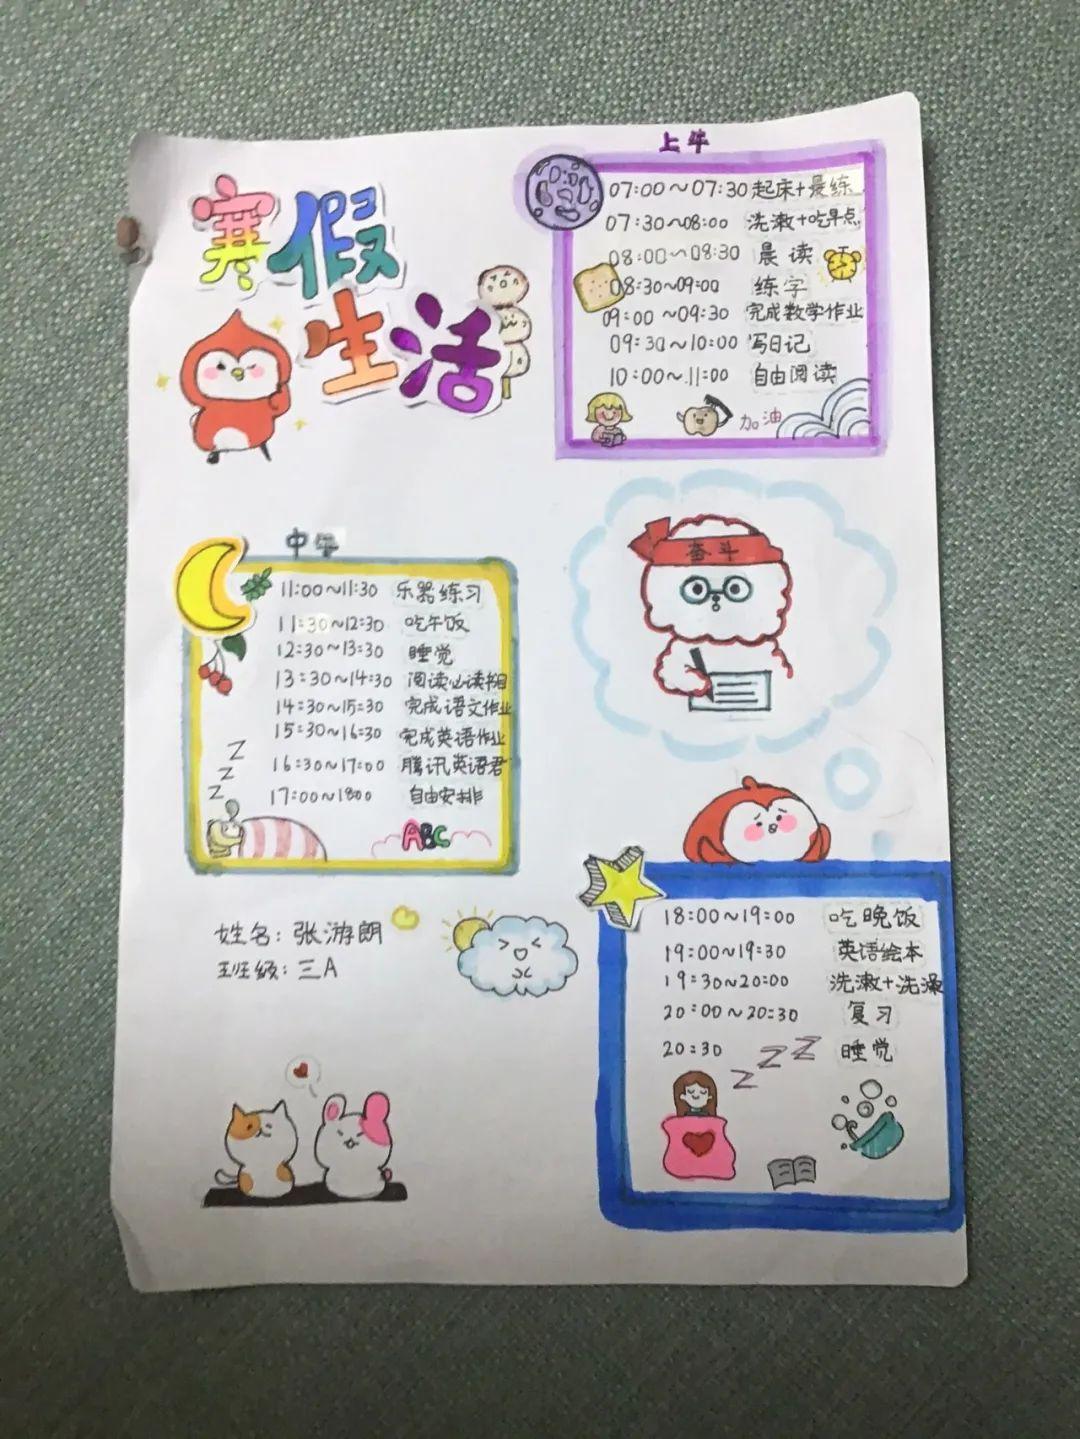 寒假
生活
上午
07:00~07:30 起床+晨练
07:30~08:00 洗漱+吃早点
08:00~08:30 晨读
08:30~09:00 练字
09:00~09:30 完成数学作业
09:30~10:00 写日记
10:00~11:00 自由阅读
加油
奋斗
中午
11:00~11:30 乐器练习
11:30~12:30 吃午饭
12:30~13:30 睡觉
13:30~14:30 阅读必读书目
14:30~15:30 完成语文作业
15:30~16:30 完成英语作业
16:30~17:00 腾讯英语君
17:00~1800 自由安排
zzz
ABC
姓名:张游朗
班级:三A
18:00~19:00 吃晚饭
19:00~19:30 英语绘本
19:30~20:00 洗漱+洗澡
20:00~20:30 复习
20:30 睡觉
zzz